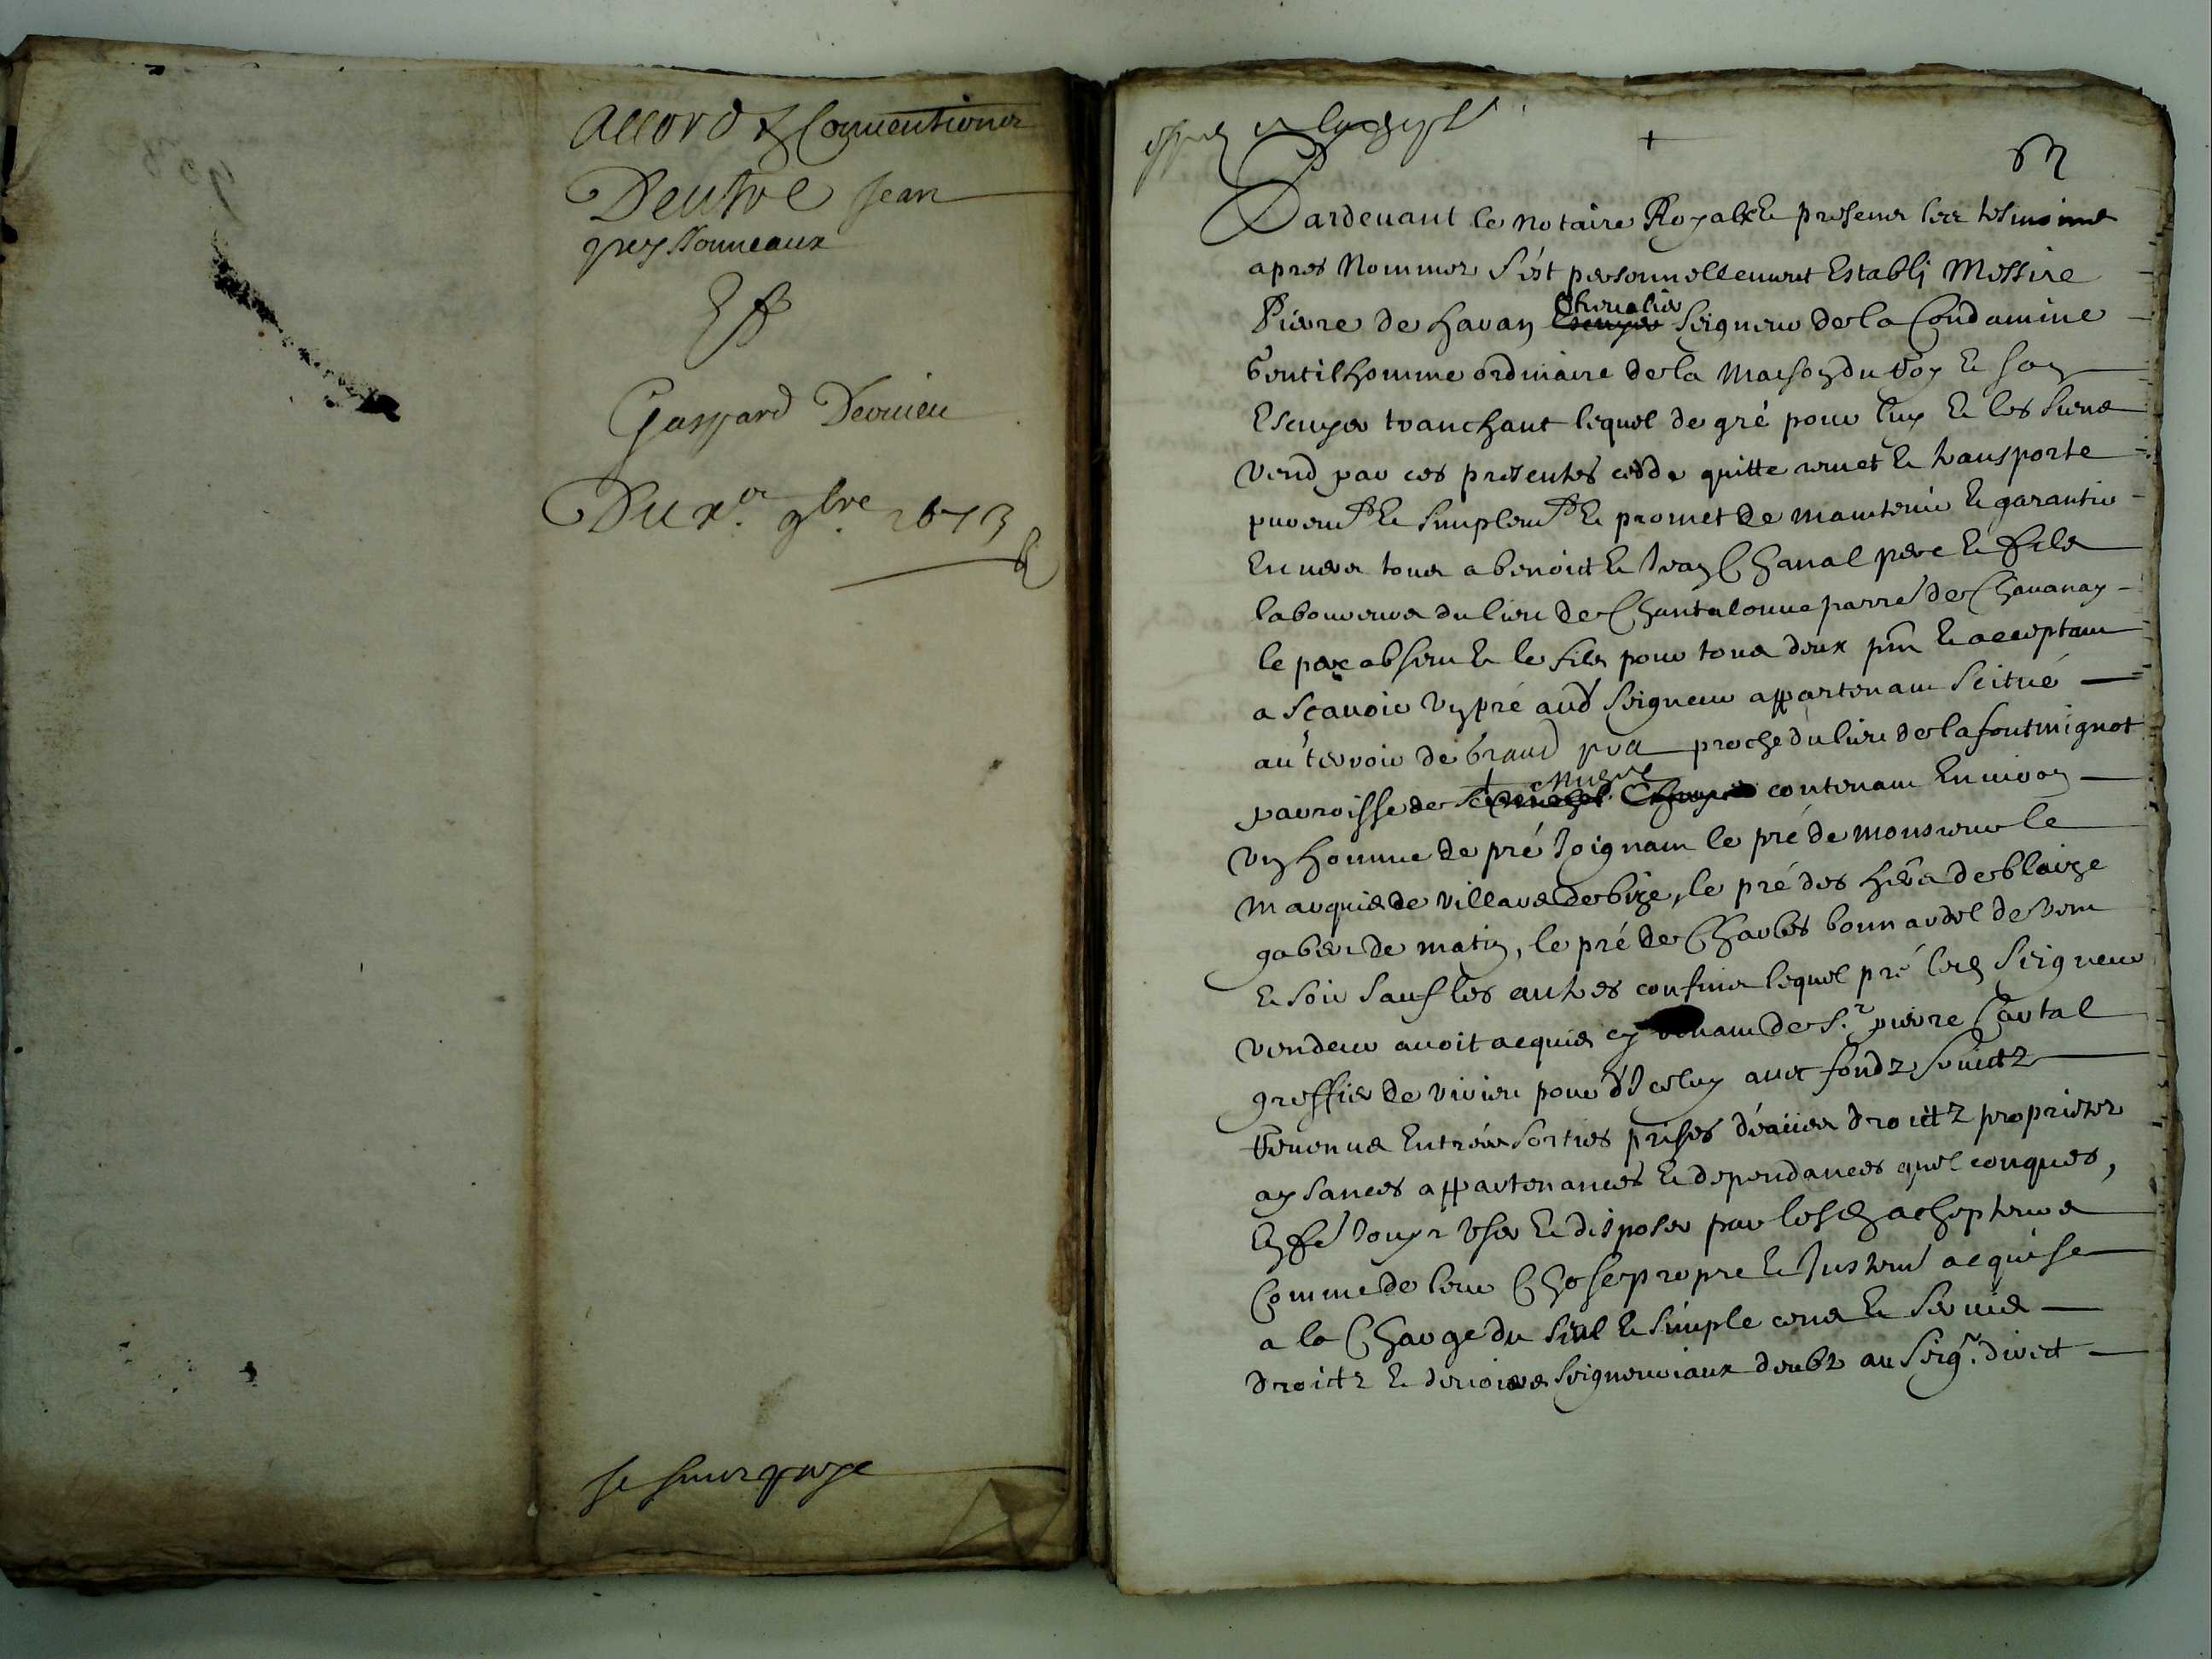 Accord & Conventions
D'entre Jean
Et
Gaspard
Du xe 9bre 1673
+
Pardevant le notaire Royal & presens les tesmoins
apres Nommez s'est personnellement Establj Messire
Pierre de Chevalier Seigneur de la Condamine
Gentilhomme ordinaire de la Maison du Roy & son
Escuyer tranchant lequel de gré pour luy & les siens
vend par ces presentes cedde quitte remet & transporte
puremt & simplemt & promet de maintenir & garantir
Envers tous a benoict & Jean Chanal pere & fils
laboureurs du lieu de Chantaloue parre de Chavanay
le pere absent & le fils pour tous deux pnt & acceptant
a sçavoir un pré aud Seigneur appartenant scitué
au terroir de Grand pra proche du lieu de lafontmignot
parroisse de contenant Environ
un homme de pré Joignant le pré de monsieur le
marquis de villars de bize, le pré des hers de blaize
gaber de matin, le pré de Charles bonnardel de vent
& soir sauf les autres confins lequel pré led Seigneur
vendeur avoit acquis cy devant de Sr pierre Cartal
greffier de virieu pour d'Iceluy avec fondz fruictz
Revenus Entrées sorties prises d'eaües droictz proprietez
aysances appartenances & dependances quelconques,
En fe Jouyr User & disposer par lesd achepteurs
Comme de leur Chose propre & Justemt acquise
a la Charge du seul & simple cens & servis
droictz & devoirs Seigneuriaux deubz au Seigr direct